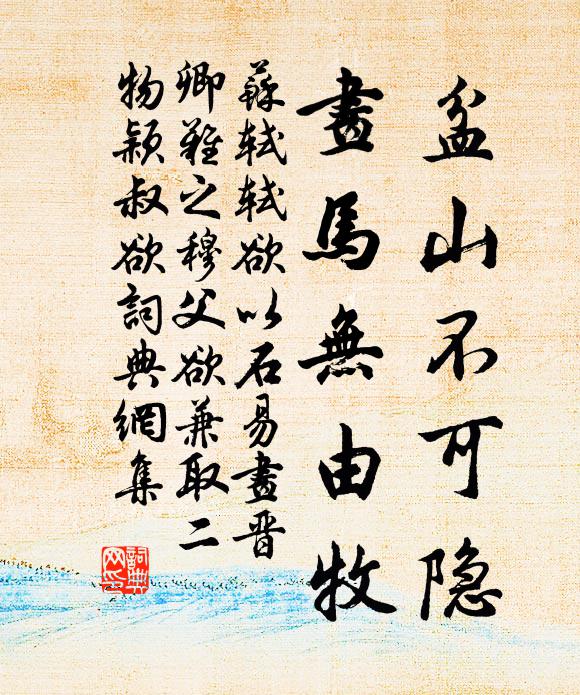 盆山不可隐
畫馬無由牧
蘇轼轼欲以石易畫晋
卿難之穆父欲兼取二
物穎叔欲詞典網集
詞典网印